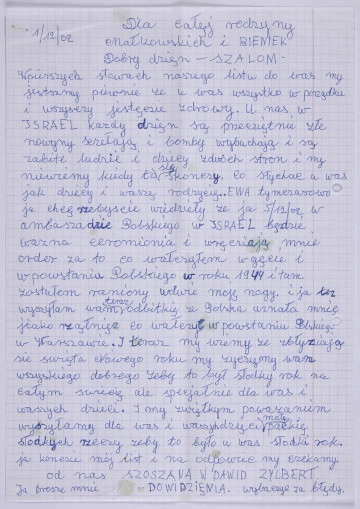 1/12/02
Dla całej rodzyny
Małkowskich i BIEMEK
Dobry dzień — SZALOM —
W pierszych słowach naszego listu do was my
jestesmy piewnie ze u was wszystko w porządku
i wszyscy jesteście zdrowy. U nas w
ISRAEL kazdy dzień są przeciętnie złe
nowyny strzelają i bomby wybuchają i są
zabite ludzie i dziecy z dwoch stron i my
niewiemy kiedy to się skonczy. Co stychac u was
jak dziecy i waszy rodzyce. EWA tymczasowo
ja chcę zebyscie wiedziely ze ja 5/12/02 w
ambasadzie Polskiego w ISRAEL będzie
wazna ceromionia i wręczeiają mnie
order za to co walczyłem w gęcie i
w powstaniu Polskiego w roku 1944 i tam
zostałem raniony w dwie mojj nogy. i ja tez
wysyłam wam teraz odbitkę ze Polska uznała mnie
jako co walczył w powstaniu Polskiego
w Warszawie. I teraz my wiemy ze zblyzają
sie swięta nowego roku my zyczymy wam
wszyskiego dobrego zeby to był słodki rok na
całym swiecię ale specjalnie dla was i
waszych dzieci. I my zwiętkym powazaniem
wysyłamy dla was i waszych dziecy małe packię
słodkych rzeczy zeby to było u was słodki rok.
ja koncże mój list i na odpowiec my czekamy.
od nas SZOSZANA W DAWID ZYLBERT
Ja prosze mnie DOWIDZIENIA. wybaczyc za błędy.